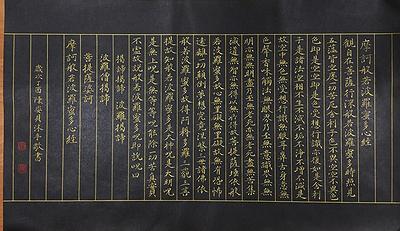 摩訶般若波羅蜜多心經
觀自在菩薩行深般若波羅蜜多時照見
五蘊皆空度一切苦厄舍利子色不異空空不異色
色即是空空即是色受想行識亦復如是舍利
子是諸法空相不生不滅不垢不淨不增不減是
故空中無色無受想行識無眼耳鼻舌身意無
色聲香味觸法無眼界乃至無意識界無無
明亦無無明盡乃至無老死亦無老死盡無苦集
滅道無智亦無得以無所得故菩提薩埵依般
若波羅蜜多故心無罣礙無罣礙故無有恐怖
遠離一切顛倒夢想究竟涅槃三世諸佛依
般若波羅蜜多故得阿耨多羅三藐三菩
提故知般若波羅蜜多是大神咒是大明咒
是無上咒是無等等咒能除一切苦真實
不虛故說般若波羅蜜多咒即說咒曰
揭諦揭諦 波羅揭諦
波羅僧揭諦
菩提薩婆訶
摩訶般若波羅蜜多心經
歲次丁酉 沐手敬書